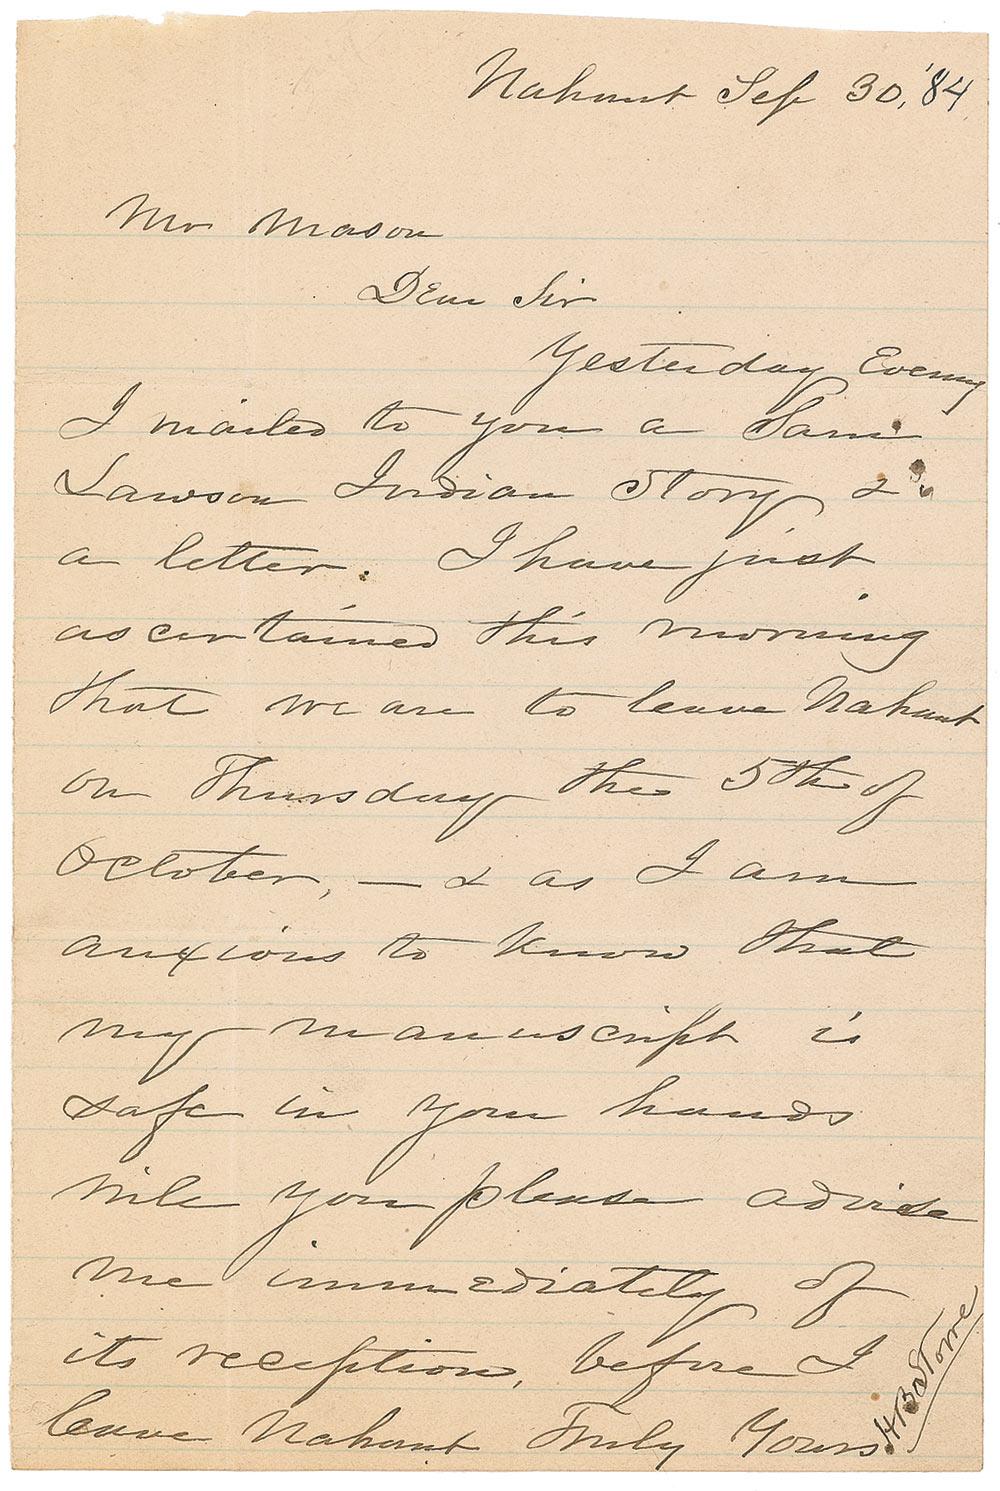 Nahant Sep 30, '84
Mr Mason
Dear Sir
Yesterday Evening
I mailed to you a Sam
Lawson Indian Story &
a letter. I have just
ascertained this morning
that we are to leave Nahant
on Thursday the 5th of
October, — & as I am
anxious to know that
my manuscript is
safe in your hands
will you please advise
me immediately of
its reception, before I
leave Nahant Truly Yours
H B Stowe